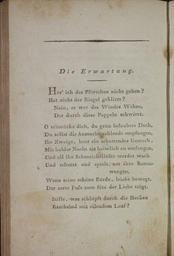 Die Erwartung.
Hör' ich das Pförtchen nicht gehen?
Hat nicht der Riegel geklirrt?
Nein, es war des Windes Wehen,
Der durch diese Pappeln schwirrt.
O schmücke dich, du grün belaubtes Dach,
Du sollst die Anmuthstrahlende empfangen,
Ihr Zweige, baut ein schattendes Gemach,
Mit holder Nacht sie heimlich zu umfangen,
Und all ihr Schmeichellüfte werdet wach
Und scherzt und spielt um ihre Rosen-
wangen,
Wenn seine schöne Bürde, leicht bewegt,
Der zarte Fuß zum Sitz der Liebe trägt.
Stille, was schlüpft durch die Hecken
Raschelnd mit eilendem Lauf?